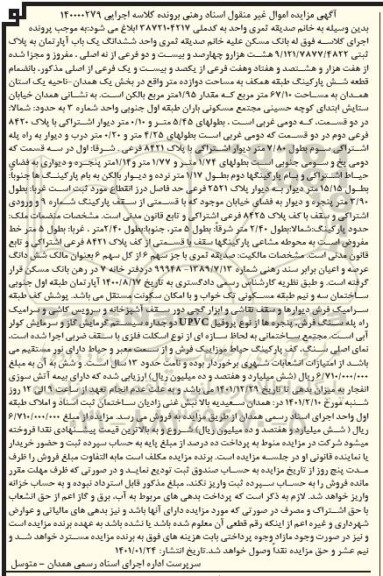 آگهی مزایده اموال غیر منقول اسناد رهنی پرونده کلاسه اجرایی ۱۴۰۰۰۰۲۷۹
بدین وسیله به خانم صدیقه ثمری واحد به کدملی ۳۸۷۲۱۰۴۲۱۷ ابلاغ می شود:به موجب پرونده
اجرائی کلاسه فوق له بانک مسکن علیه خانم صدیقه ثمری واحد ششدانگ یک باب آپارتمان به پلاک
ثبتی ۹/۱۲۱/۷۸۷۷/۸۴۲۲ هشت هزارو چهارصد و بیست و دو فرعی از نه اصلی ، مفروز و مجزا شده
از هفت هزار و هشتصد و هفتاد وهفت فرعی از یکصد و بیست و یک فرعی از اصلی مذکور، بانضمام
قطعه شش پارکینگ طبقه همکف به مساحت دوازده متر واقع در بخش یک همدان -ناحیه یک استان
همدان به مساحت ۶۷/۱۰ متر مربع که مقدار ۱/۹۵متر مربع بالکن است. به نشانی همدان خیابان
ستایش ابتدای کوچه حسینی مجتمع مسکونی باران طبقه اول جنوبی واحد شماره ۳ به حدود: شمالا:
در دو قسمت، که دومی غربی است . بطولهای ۵/۴۵ متر و ۰/۱۰ متر دیوار اشتراکی با پلاک ۸۴۲۰
فرعی دوم در دو قسمت که دومی غربی است بطولهای ۴/۲۵ متر و ۰/۲۰ متر درب و دیوار به راه پله
اشتراکی سوم بطول ۷/۸۰ متر دیوار اشتراکی با پلاک ۸۴۲۱ فرعی . شرقا: اول در سه قسمت که
دومی پخ و سوم جنوبی است بطولهای ۱/۷۴ متر و ۱/۷۷ متر و ۱/۱۴متر پنجره و دیواری به فضای
حیاط اشتراکی و بام پارکینگها دوم بطول ۱/۱۷ متر نرده و دیوار بالکن به بام پارکینگ ها جنوبا:
بطول ۱۵/۱۵ متر دیوار به دیوار پلاک ۲۵۲۱ فرعی حد فاصل درز انقطاع مورد ثبت است غربا: بطول
۳/۹۰ متر پنجره و دیوار به فضای خیابان موجود که با قسمتی از سقف پارکینگ شماره ۹ و ورودی
اشتراکی و سقف با کف پلاک ۸۴۲۵ فرعی اشتراکی و تابع قانون مدنی است. مشخصات منضمات ملک:
حدود پارکینگ:شمالا:بطول ۲/۴۰ متر شرقا: بطول ۵ متر. جنوبا:بطول ۲/۴۰متر . غربا: بطول ۵ متر خط
مفروض است به محوطه مشاعی پارکینگها سقف با قسمتی از کف پلاک ۸۴۲۱ فرعی اشتراکی و تابع
قانون مدنی است. مشخصات مالکیت: صدیقه ثمری با جز سهم ۶ از کل سهم ۶بعنوان مالک شش دانگ
عرصه و اعیان برابر سند رهنی شماره ۱۳۸۹/۷/۱۳- ۹۹۹۴۸ دردفتر خانه ۷ در رهن بانک مسکن قرار
گرفته است. و طبق نظریه کارشناس رسمی دادگستری به تاریخ ۱۴۰۰/۸/۱۷ آپارتمان طبقه اول جنوبی
ساختمان سه و نیم طبقه مسکونی تک خواب و با امکان سکونت مستقل می باشد. پوشش کف طبقه
سرامیک فرش دیوارها و سقف نقاشی و ابزار گچی دور سقف. آشپزخانه و سرویس کاشی و سرامیک
راه پله سنگ فرش، پنجره ها از نوع پروفیل UPVC دو جداره سیستم گرمایش گاز و سرمایش کولر
آبی است. مجتمع ساختمانی به لحاظ سازه ای از نوع اسکلت فلزی با سقف ضربی اجرا شده است.
نمای اصلی سنگ، کف پارکینگ حیاط موزاییک فرش و از سمت معبر و حیاط دارای نور مستقیم می
باشد از امتیازات انشعابات شهری برخوردار بوده و نامت حدود ۱۳ سال است. و شش به آن به مبلغ
۶/۷۱۰/۰۰۰/۰۰۰ ریال (شش میلیارد و هفتصد و ده میلیون ریال) ارزیابی شده که دارای بیمه آتش سوزی
انفجار به میزان بدهی تا تاریخ ۱۴۰۱/۳/۲۹ می باشد. و به علت عدم انجام تعهد از ساعت ۹ الی ۱۲ روز
شنبه مورخ ۱۴۰۱/۲/۱۰ در: همدان، سعیدیه بالا نبش غنی زادیان ساختمان ثبت اسناد و املاک طبقه
اول واحد اجرای اسناد رسمی همدان از طریق مزایده به فروش می رسد. مزایده از مبلغ ۶/۷۱۰/۰۰۰/۰۰۰
ریال ( شش میلیارد و هفتصد و ده میلیون ریال) شروع و به بالاترین قیمت پیشنهادی نقدا فروخته
میشود شرکت در مزایده منوط به پرداخت ده درصد از مبلغ پایه به حساب سپرده ثبت و حضور خریدار
یا نماینده قانونی او در جلسه مزایده است. برنده مزایده مکلف است مابه التفاوت مبلغ فروش را ظرف
مدت پنج روز از تاریخ مزایده به حساب صندوق ثبت تودیع نماید و در صورتی که ظرف مهلت مقرر
مانده فروش را به حساب سپرده ثبت واریز نکند، مبلغ مذکور قابل استرداد نبوده و به حساب خزانه
واریز خواهد شد. لازم به ذکر است که پرداخت بدهی های مربوط به آب، برق و گاز اعم از حق انشعاب
یا حق اشتراک و مصرف در صورتی که مورد مزایده دارای آنها باشد و نیز بدهی های مالیاتی و عوارض
شهرداری و غیره اعم از اینکه رقم قطعی آن معلوم شده باشد یا نشده باشد به عهده برنده مزایده است
و نیز در صورت وجود مازاد وجوه پرداختی بابت هزینه های فوق به برنده مزایده مسترد خواهد شد و
نیم عشر و حق مزایده نقداً وصول خواهد شد.تاریخ انتشار: ۱۴۰۱/۰۱/۲۴
سرپرست اداره اجرای اسناد رسمی همدان - متوسل